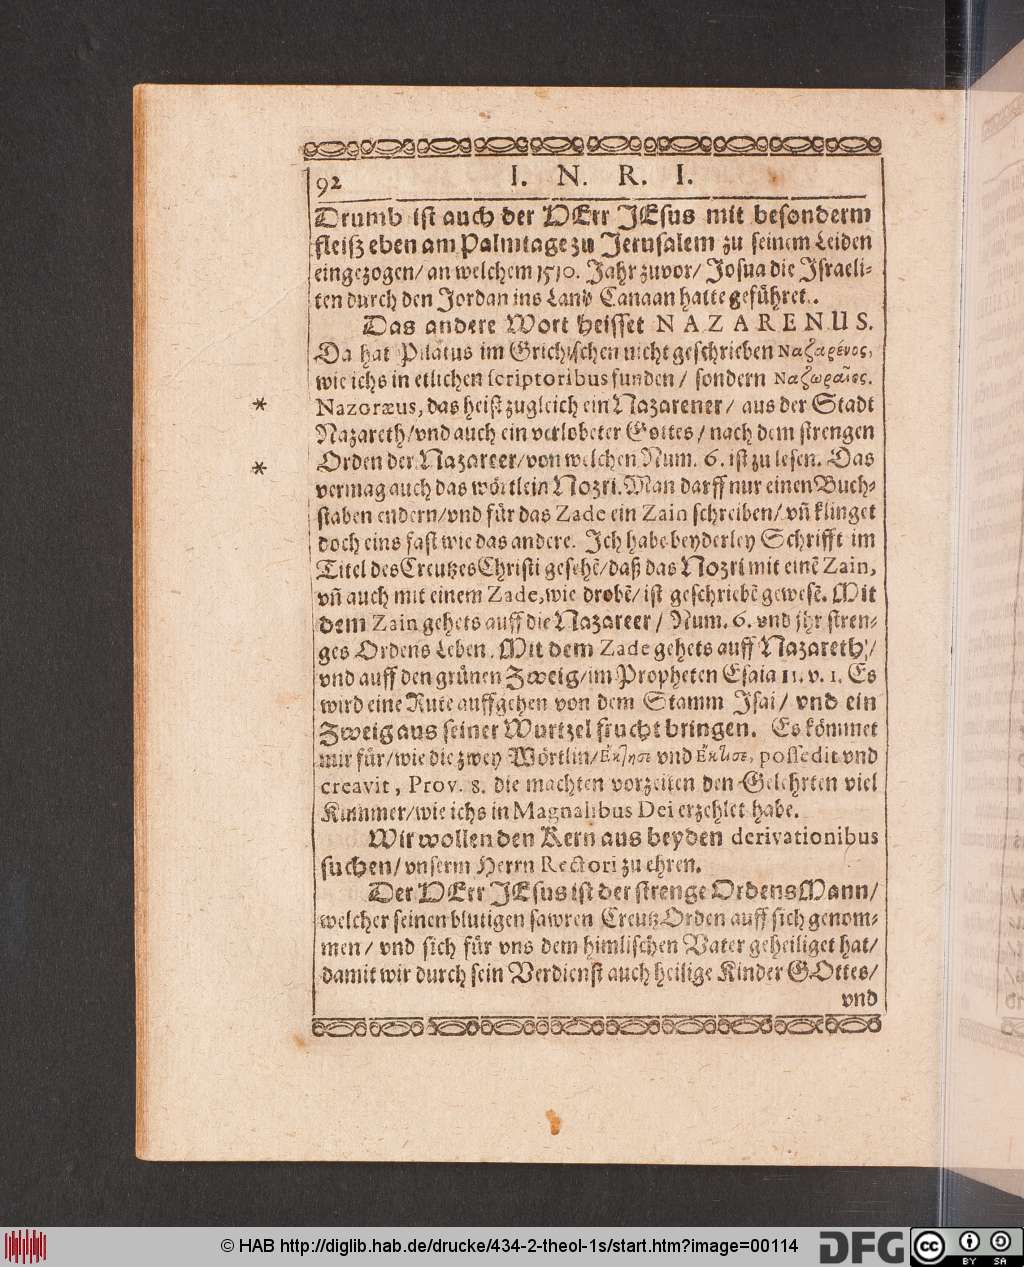 92
I. N. R. I.
Drumb ist auch der HErr JEsus mit besonderm
fleiß eben am Palmtage zu Jerusalem zu seinem Leiden
eingezogen/ an welchem 1510. Jahr zuvor/ Josua die Israeli-
ten durch den Jordan ins Land Canaan hatte geführet.
Das andere Wort heisset NAZARENUS.
Da hat Pilatus im Grichischen nicht geschrieben Ναζαρένος,
wie ichs in etlichen scriptoribus funden/ sondern Ναζωραῖος.
* Nazoræus, das heist zugleich ein Nazarener/ aus der Stadt
Nazareth/ vnd auch ein verlobeter Gottes/ nach dem strengen
* Orden der Nazareer/ von welchen Num. 6. ist zu lesen. Das
vermag auch das wörtlein Nozri. Man darff nur einen Buch-
staben endern/ vnd für das Zade ein Zain schreiben/ vn̄ klinget
doch eins fast wie das andere. Ich habe beyderley Schrifft im
Titel des Creutzes Christi gesehē/ daß das Nozri mit einē Zain,
vn̄ auch mit einem Zade, wie drobē/ ist geschriebē gewesē. Mit
dem Zain gehets auff die Nazareer/ Num. 6. vnd jhr stren-
ges Ordens Leben. Mit dem Zade gehets auff Nazareth/
vnd auff den grünen Zweig/ im Propheten Esaia 11. v. 1. Es
wird eine Rute auffgehen von dem Stamm Isai/ vnd ein
Zweig aus seiner Wurtzel frucht bringen. Es kömmet
mir für/ wie die zwey Wörtlin/ Ἐκτησε vnd Ἔκτισε, possedit vnd
creavit, Prov. 8. die machten vorzeiten den Gelehrten viel
Kummer/ wie ichs in Magnalibus Dei erzehlet habe.
Wir wollen den Kern aus beyden derivationibus
suchen/ vnserm Herrn Rectori zu ehren.
Der HErr JEsus ist der strenge OrdensMann/
welcher seinen blutigen sawren Creutz Orden auff sich genom-
men/ vnd sich für vns dem himlischen Vater geheiliget hat/
damit wir durch sein Verdienst auch heilige Kinder GOttes/
vnd
© HAB http://diglib.hab.de/drucke/434-2-theol-1s/start.htm?image=00114
DFG
cc BY SA